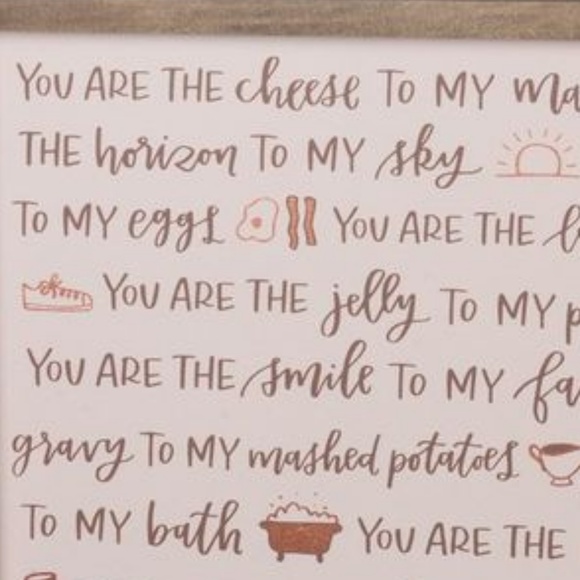 You ARE THE cheese TO MY
THE horizon TO MY sky
To MY eggs You ARE THE
You ARE THE jelly To MY
You ARE THE smile To MY
gravy To MY mashed potatoes
To MY bath You ARE THE